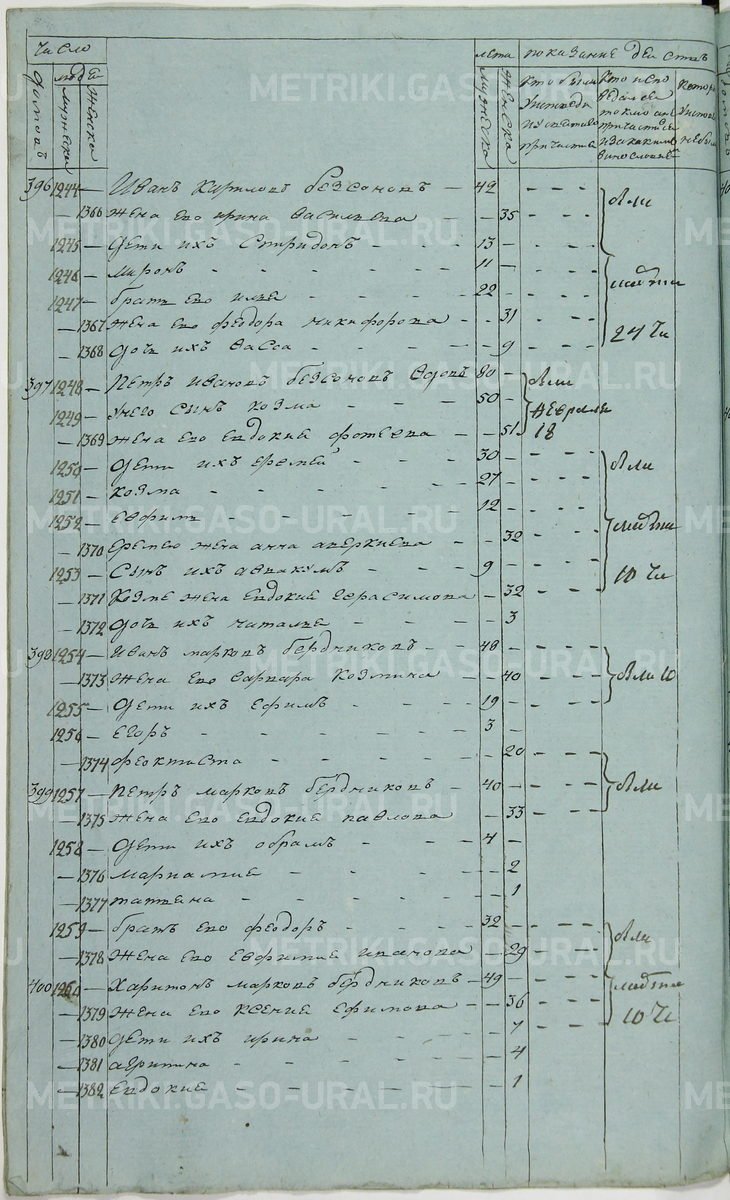 число
людей
домовъ
мужеска
женска
лета
мужеска
женска
показание деиствъ
кто были
у исповеди
и у святаго
причастия
кто испо
ведался
токмо а не
причастился
и за какимъ
винословиемъ
396 1244 — Иванъ Кириловъ безсоновъ — 42 - - - -
— 1366 жена его ирина васильева — 35 - - - -
1245 — дети ихъ Спиридонъ - - - - 13 - - - - -
1246 — миронъ - - - - 11 - - - - -
1247 — братъ его илья - - - - 22 - - - - -
— 1367 жена его феодора никифорова — 31 - - - -
— 1368 дочь ихъ васса - - - - 9 - - - -
397 1248 — Петръ ивановъ безсоновъ вдовъ 80 - - -
1249 — у него сынъ козма - - - 50 - -
февраля
18
— 1369 жена его евдокия фотеева — 51
1250 — дети ихъ еремей - - - 30 - - - - -
1251 — козма - - - - 27 - - - - -
1252 — евфимъ - - - - 12 - - - - -
— 1370 еремею жена анна аверкиева — 32 - - - -
1253 — Сынъ ихъ аввакумъ - - - 9 - - - - -
10 Чи
— 1371 козме жена евдокия герасимова — 32 - - - -
— 1372 дочь ихъ наталья - - - - 3
398 1254 — иванъ марковъ бердниковъ - - 48 - - - - -
— 1373 жена его варвара козмина — 40 - - - -
1255 — дети ихъ ефимъ - - - - 19 - - - - -
1256 — егоръ - - - - 3 -
— 1374 феоктиста - - - - 20 - - - -
399 1257 — Петръ марковъ бердниковъ — 40 - - - - -
— 1375 жена его евдокия павлова — 33 - - - -
1258 — дети ихъ абрамъ - - - - 4 -
— 1376 мариамия - - - - 2
— 1377 татьяна - - - - 1
1259 — братъ его феодоръ - - - 32 - - - - -
— 1378 жена его евфимия иванова — 29 - - - -
400 1260 — Харитонъ марковъ бердниковъ — 49 - - - - -
— 1379 жена его ксения ефимова — 36 - - - -
10 Чи
— 1380 дети ихъ ирина - - - - 7 - - - -
— 1381 агрипина - - - - 4
— 1382 евдокия - - - - 1
METRIKI.GASO-URAL.RU